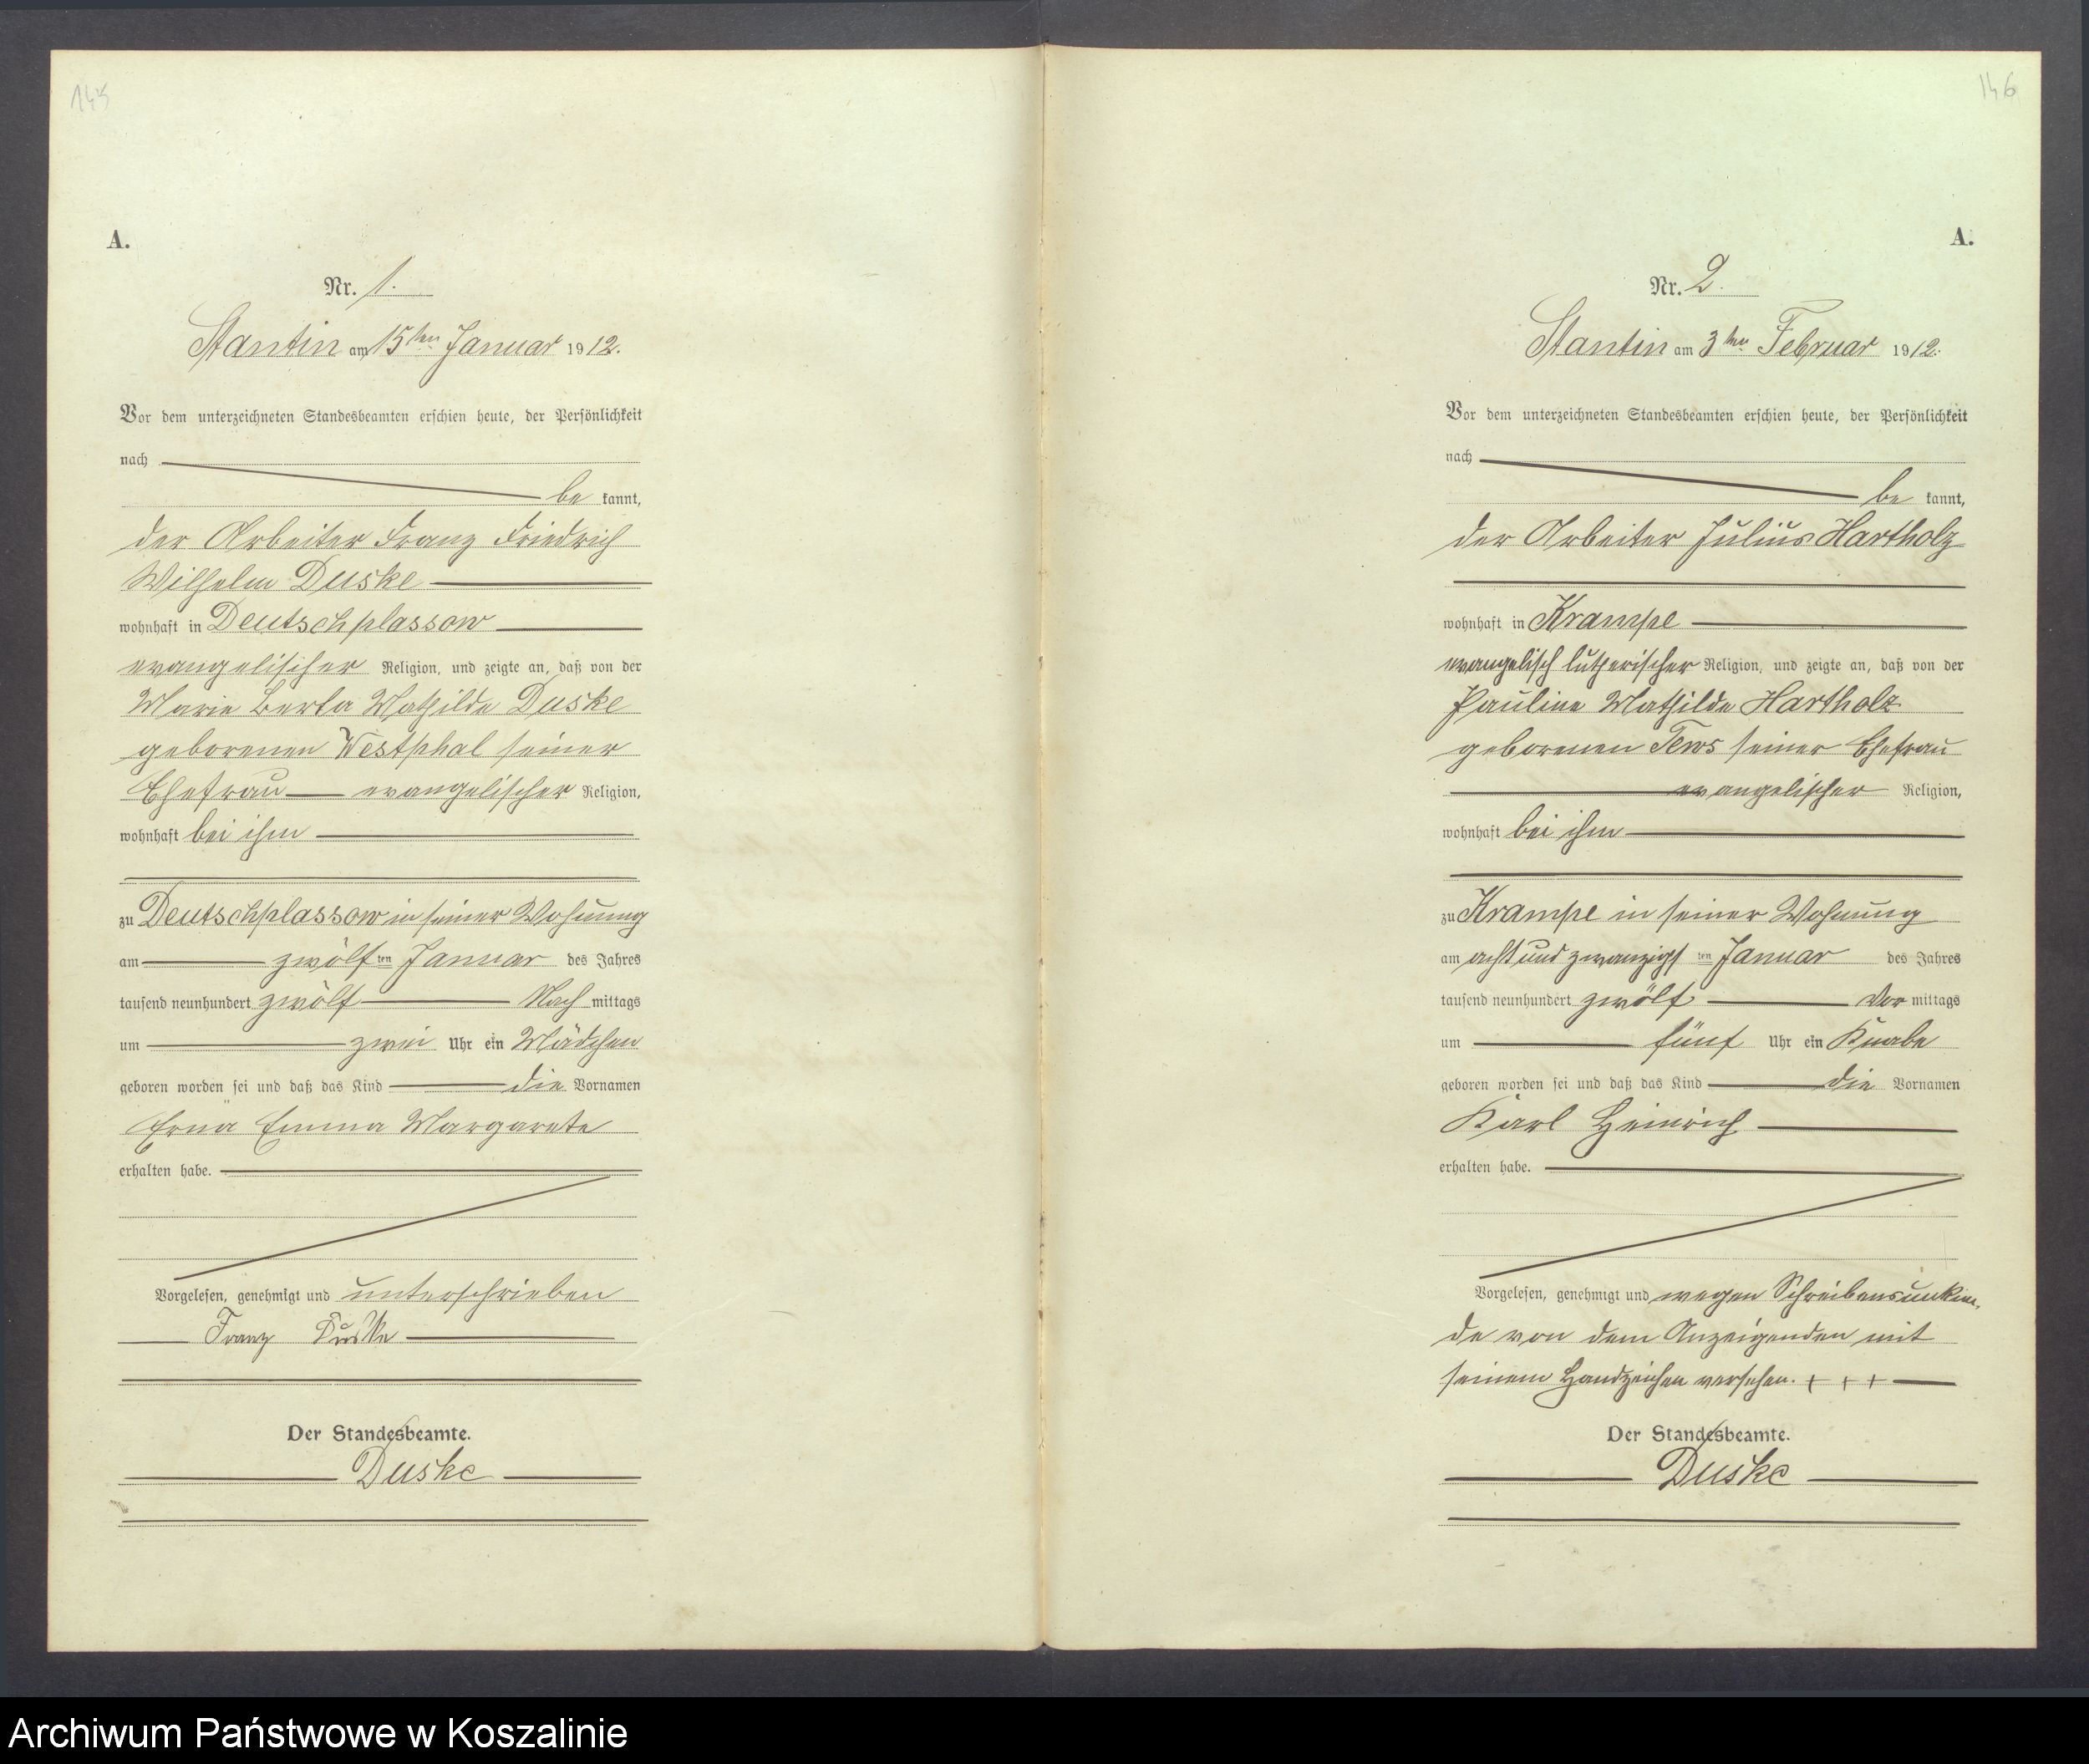 145
A.
Nr. 1.
Stantin am 15ten Januar 1912.
Vor dem unterzeichneten Standesbeamten erschien heute, der Persönlichkeit
nach
be kannt,
der Arbeiter Franz Friedrich
Wilhelm Duske
wohnhaft in Deutschplassow
evangelischer Religion, und zeigte an, daß von der
Marie Berta Mathilde Duske
geborenen Westphal seiner
Ehefrau evangelischer Religion,
wohnhaft bei ihm
zu Deutschplassow in seiner Wohnung
am zwölf ten Januar des Jahres
tausend neunhundert zwölf Nach mittags
um zwei Uhr ein Mädchen
geboren worden sei und daß das Kind die Vornamen
Erna Emma Margarete
erhalten habe.
Vorgelesen, genehmigt und unterschrieben
Franz Duske
Der Standesbeamte.
Duske
146
A.
Nr. 2.
Stantin am 3ten Februar 1912.
Vor dem unterzeichneten Standesbeamten erschien heute, der Persönlichkeit
nach
be kannt,
der Arbeiter Julius Hartholz
wohnhaft in Krampe
evangelisch lutherischer Religion, und zeigte an, daß von der
Pauline Mathilde Hartholz
geborenen Tews seiner Ehefrau
evangelischer Religion,
wohnhaft bei ihm
zu Krampe in seiner Wohnung
am acht und zwanzigst ten Januar des Jahres
tausend neunhundert zwölf Vor mittags
um fünf Uhr ein Knabe
geboren worden sei und daß das Kind die Vornamen
Karl Heinrich
erhalten habe.
Vorgelesen, genehmigt und wegen Schreibensunkun-
de von dem Anzeigenden mit
seinem Handzeichen versehen. + + +
Der Standesbeamte.
Duske
Archiwum Państwowe w Koszalinie